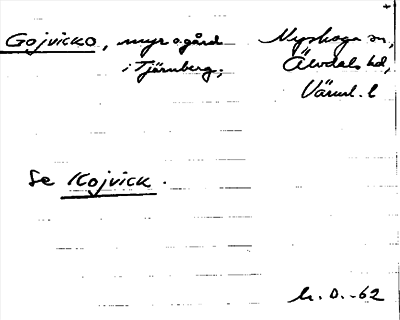 Gojvicko, myr o gård
i Tjärnberg;
Nyskoga sn,
Älvdals hd,
Värml. l
Se Kojvick.
D. -62